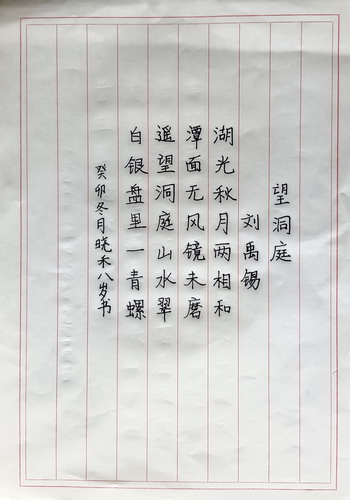 望洞庭
刘禹锡
湖光秋月两相和
潭面无风镜未磨
遥望洞庭山水翠
白银盘里一青螺
癸卯冬月晓禾八岁书